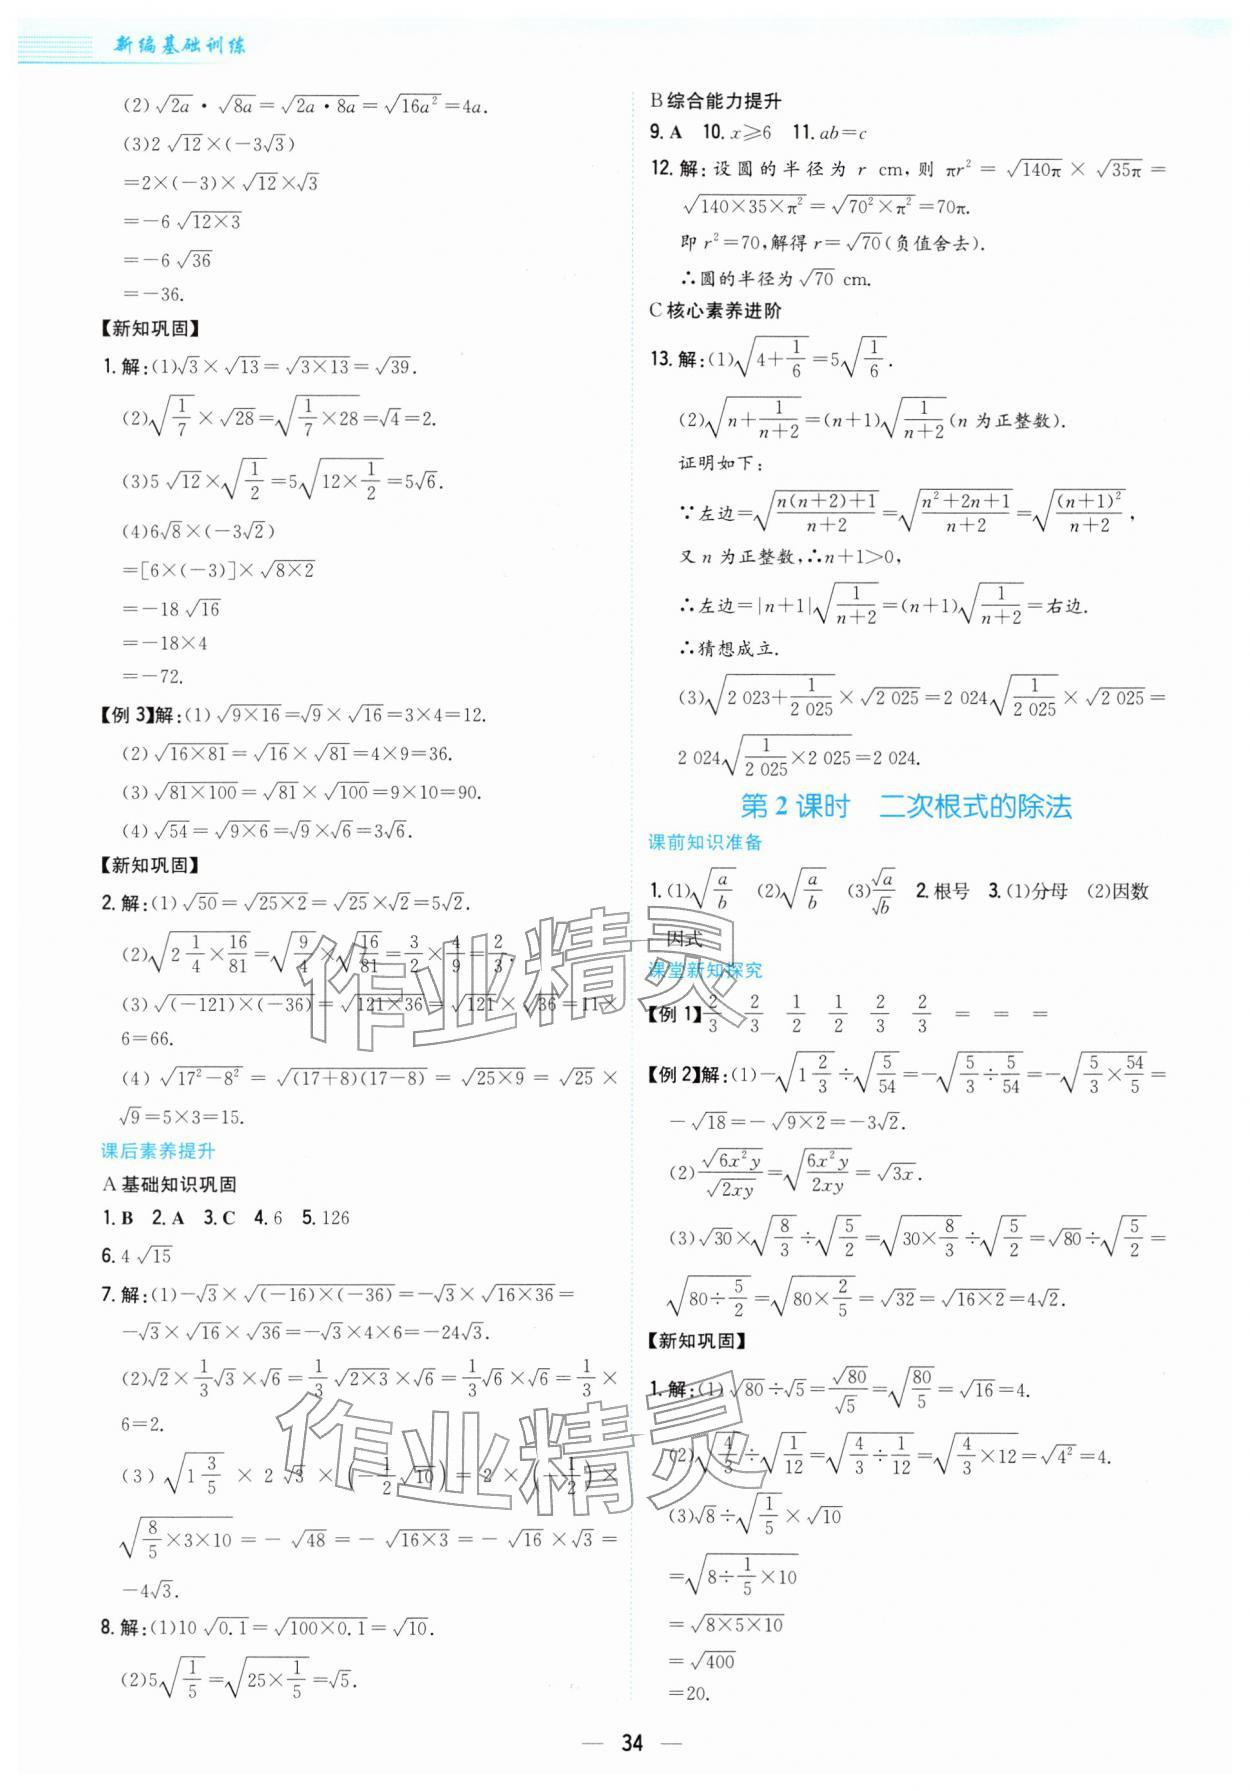 新编基础训练
(2)√2a·√8a=√(2a·8a)=√(16a²)=4a.
(3)2√12×(-3√3)
=2×(-3)×√12×√3
=-6√(12×3)
=-6√36
=-36.
【新知巩固】
1.解:(1)√3×√13=√(3×13)=√39.
(2)√(1/7)×√28=√(1/7×28)=√4=2.
(3)5√12×√(1/2)=5√(12×1/2)=5√6.
(4)6√8×(-3√2)
=[6×(-3)]×√(8×2)
=-18√16
=-18×4
=-72.
【例3】解:(1)√(9×16)=√9×√16=3×4=12.
(2)√(16×81)=√16×√81=4×9=36.
(3)√(81×100)=√81×√100=9×10=90.
(4)√54=√(9×6)=√9×√6=3√6.
【新知巩固】
2.解:(1)√50=√(25×2)=√25×√2=5√2.
(2)√(2 1/4×16/81)=√(9/4)×√(16/81)=3/2×4/9=2/3.
(3)√((-121)×(-36))=√(121×36)=√121×√36=11×
6=66.
(4)√(17²-8²)=√((17+8)(17-8))=√(25×9)=√25×
√9=5×3=15.
课后素养提升
A 基础知识巩固
1.B 2.A 3.C 4.6 5.126
6.4√15
7.解:(1)-√3×√((-16)×(-36))=-√3×√(16×36)=
-√3×√16×√36=-√3×4×6=-24√3.
(2)√2×1/3√3×√6=1/3√(2×3)×√6=1/3√6×√6=1/3×
6=2.
(3)√(1 3/5)×2√3×(-1/2√10)=2×(-1/2)×
√(8/5×3×10)=-√48=-√(16×3)=-√16×√3=
-4√3.
8.解:(1)10√0.1=√(100×0.1)=√10.
(2)5√(1/5)=√(25×1/5)=√5.
B 综合能力提升
9.A 10.x≥6 11.ab=c
12.解:设圆的半径为 r cm,则 πr²=√(140π)×√(35π)=
√(140×35×π²)=√(70²×π²)=70π.
即 r²=70,解得 r=√70(负值舍去).
∴圆的半径为√70 cm.
C 核心素养进阶
13.解:(1)√(4+1/6)=5√(1/6).
(2)√(n+1/(n+2))=(n+1)√(1/(n+2))(n 为正整数).
证明如下:
∵左边=√((n(n+2)+1)/(n+2))=√((n²+2n+1)/(n+2))=√((n+1)²/(n+2)),
又 n 为正整数,∴n+1>0,
∴左边=|n+1|√(1/(n+2))=(n+1)√(1/(n+2))=右边.
∴猜想成立.
(3)√(2 023+1/2 025)×√(2 025)=2 024√(1/2 025)×√(2 025)=
2 024√(1/2 025×2 025)=2 024.
第2课时 二次根式的除法
课前知识准备
1.(1)√(a/b) (2)√(a/b) (3)√a/√b 2.根号 3.(1)分母 (2)因数
因式
课堂新知探究
【例1】2/3 2/3 1/2 1/2 2/3 2/3 = = =
【例2】解:(1)-√(1 2/3)÷√(5/54)=-√(5/3÷5/54)=-√(5/3×54/5)=
-√18=-√(9×2)=-3√2.
(2)√(6x²y)/√(2xy)=√(6x²y/2xy)=√(3x).
(3)√30×√(8/3)÷√(5/2)=√(30×8/3)÷√(5/2)=√80÷√(5/2)=
√(80÷5/2)=√(80×2/5)=√32=√(16×2)=4√2.
【新知巩固】
1.解:(1)√80÷√5=√80/√5=√(80/5)=√16=4.
(2)√(4/3)÷√(1/12)=√(4/3÷1/12)=√(4/3×12)=√(4²)=4.
(3)√8÷√(1/5)×√10
=√(8÷1/5×10)
=√(8×5×10)
=√400
=20.
— 34 —
作业精灵
作业精灵